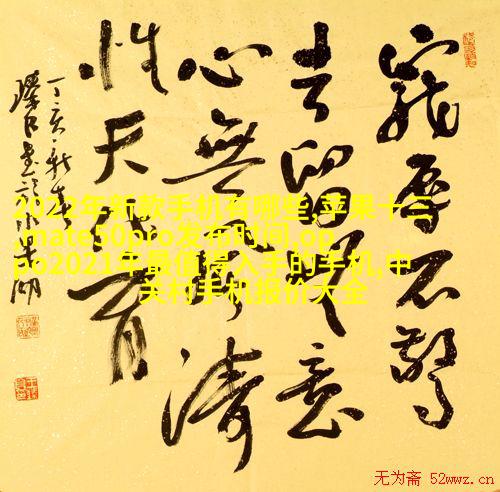 寵辱不驚
去留意
心無風濤
性天化育
丁亥新春
2022年新款手机有哪些,苹果十三
,mate50pro发布时间,op
po2021年最值得入手的手机,中
关村手机报价大全
无为斋 52wwz.cn